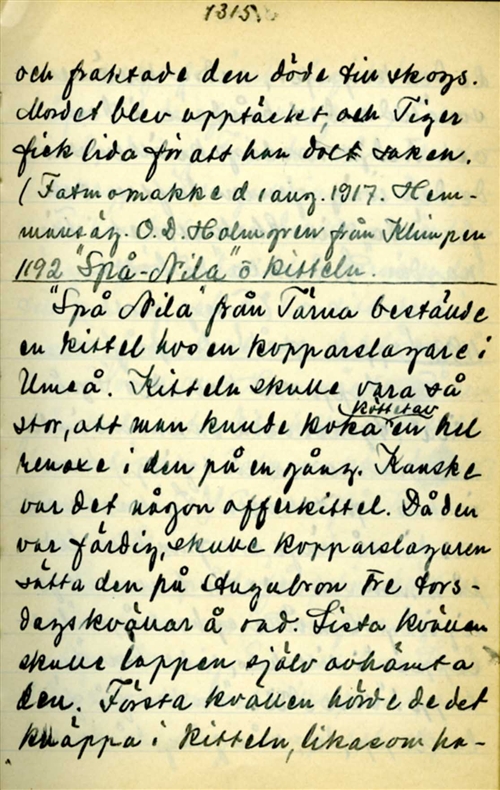 1315.
och fraktade den döde till skogs.
Mordet blev upptäckt, och Tiger
fick lida för att han dolt saken.
(Fatmomakke d 1 aug. 1917. Hem-
mansäg. O.D. Holmgren från Klimpen
1192 "Spå-Nila" o kitteln.
"Spå Nila" från Tärna beställde
en kittel hos en kopparslagare i
Umeå. Kitteln skulle vara så
stor, att man kunde koka köttet av en hel
renoxe i den på en gång. Kanske
var det någon offerkittel. Då den
var färdig, skulle kopparslagaren
sätta den på Ängabron tre tors-
dagskvällar å rad. Sista kvällen
skulle lappen själv avhämta
den. Första kvällen hörde de det
knäppa i kitteln, likasom ha-